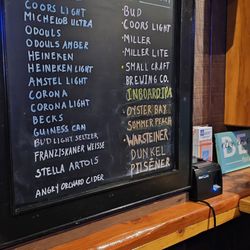 COORS LIGHT
MICHELOB ULTRA
ODOULS
ODOULS AMBER
HEINEKEN
HEINEKEN LIGHT
AMSTEL LIGHT
CORONA
CORONA LIGHT
BECKS
GUINESS CAN
BUD LIGHT SELTZER
FRANZISKANER WEISSE
STELLA ARTOIS
ANGRY ORCHARD CIDER
BUD
COORS LIGHT
MILLER
MILLER LITE
SMALL CRAFT
BREWING CO.
INBOARD IPA
OYSTER BAY
SUMMER PEACH
WARSTEINER
DUNKEL
PILSENER